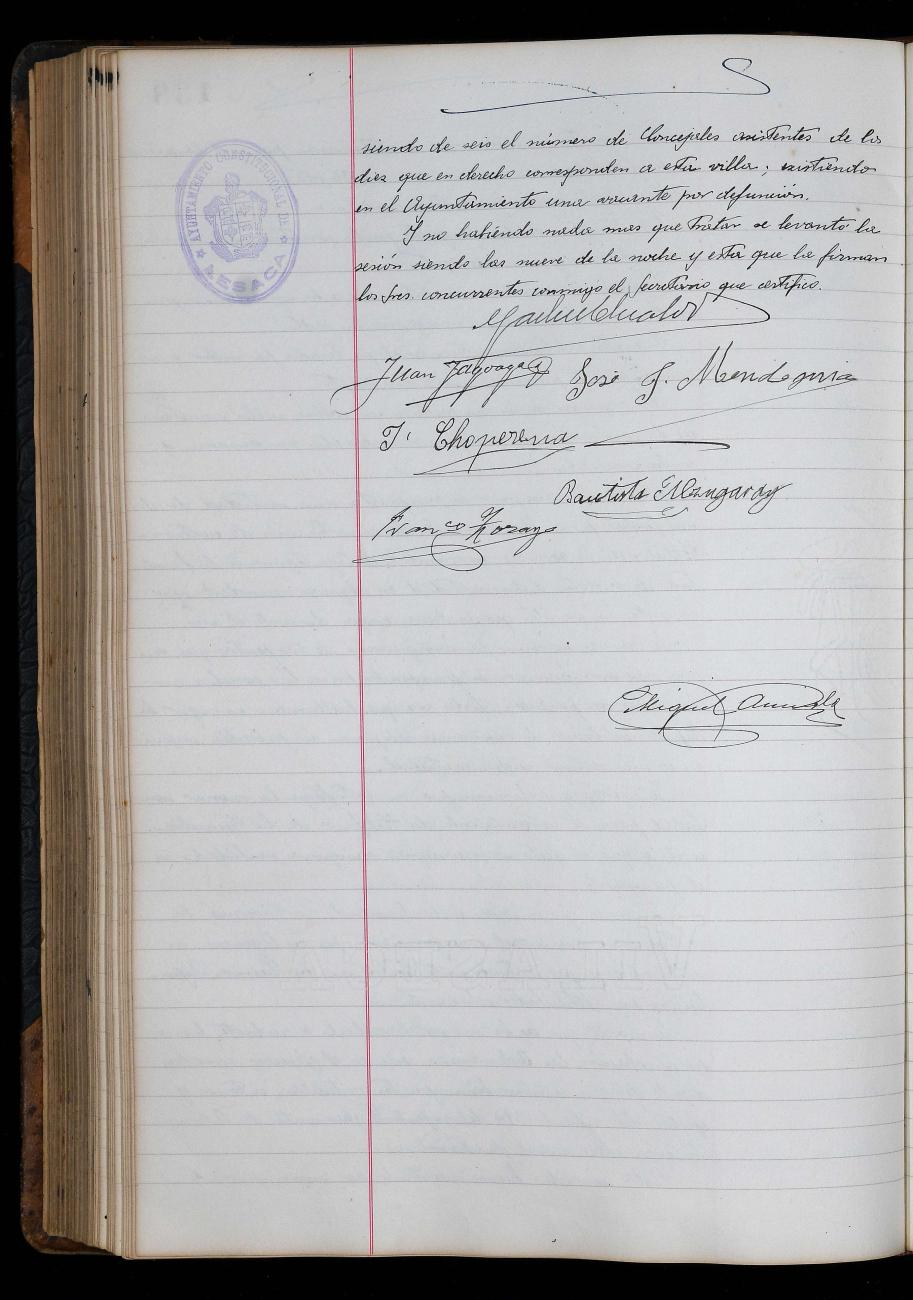 AYUNTAMIENTO CONSTITUCIONAL DE
LESACA
siendo de seis el número de Concejales asistentes de los
diez que en derecho corresponden a esta villa; existiendo
en el Ayuntamiento una vacante por defunción.
Y no habiendo nada mas que tratar se levantó la
sesión siendo las nueve de la noche y esta que la firman
los Sres. concurrentes conmigo el Secretario que certifico.
Juan
José J. Mendeguia
J. Choperena
Bautista
Franco
Miguel